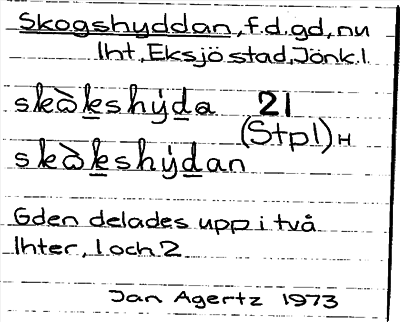 Skogshyddan, f.d.gd, nu
lht, Eksjö stad, Jönk.l.
skὼk̲eshýd̲a 21
(Stpl) H
skὼk̲eshýd̲an
Gden delades upp i två
lhter, 1 och 2
Jan Agertz 1973